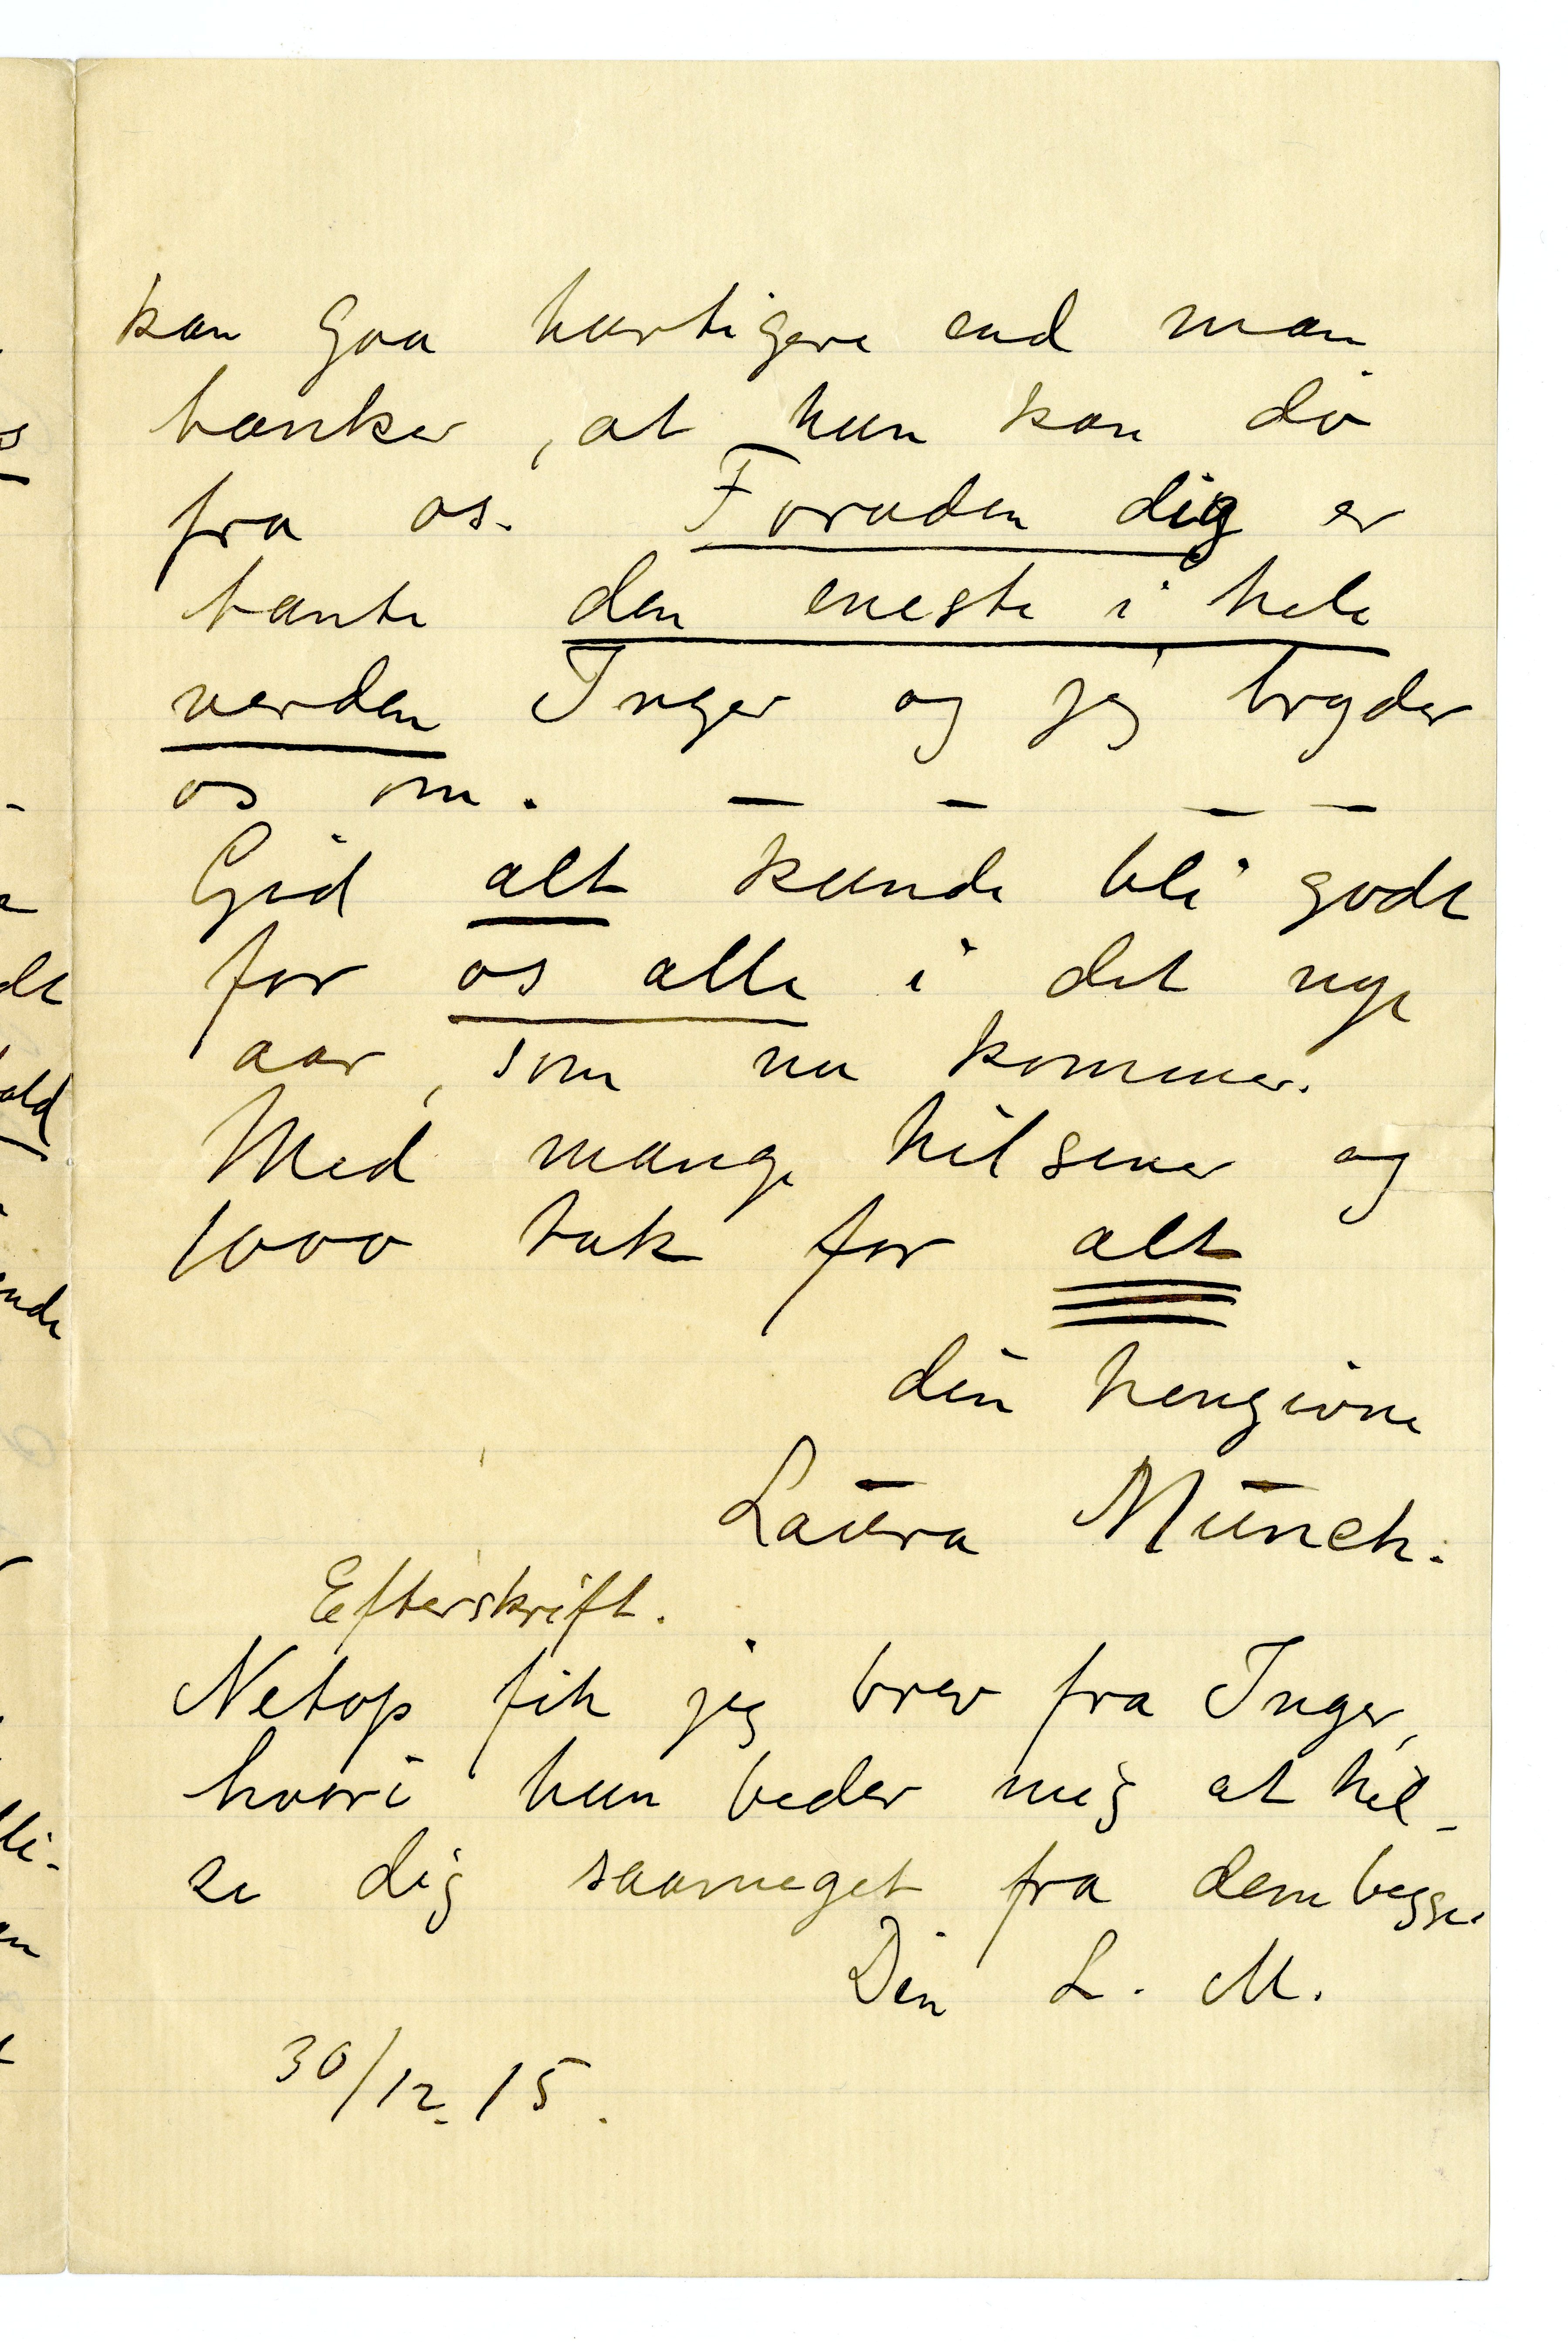 kan gaa hurtigere end man
tænker, at hun kan dö
fra os. Foruden dig er
tante den eneste i hele
verden Inger og jeg bryder
os om. — — — —
Gid alt kunde bli godt
for os alle i det nye
aar, som nu kommer.
Med mange hilsener og
1000 tak for alt
din hengivne
Laura Munch.
Efterskrift.
Netop fik jeg brev fra Inger,
hvori hun beder mig at hil-
se dig saameget fra dem begge.
Din L. M.
30/12. 15.